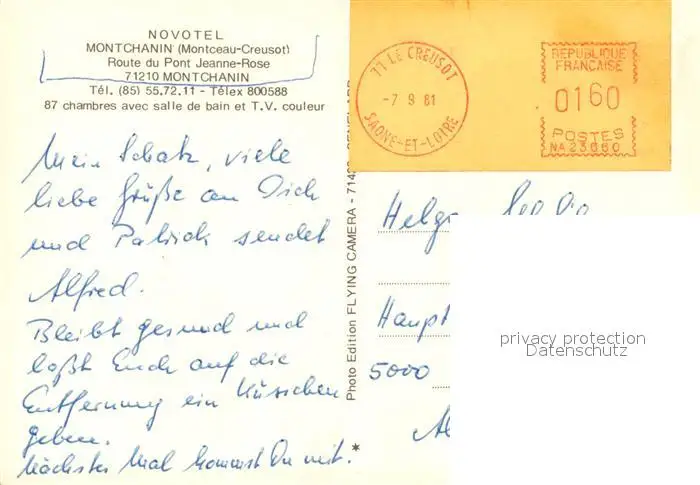 NOVOTEL
MONTCHANIN (Montceau-Creusot)
Route du Pont Jeanne-Rose
71210 MONTCHANIN
Tél. (85) 55.72.11 - Télex 800588
87 chambres avec salle de bain et T.V. couleur
Mein Schatz, viele
liebe Grüße an Dich
und Patrick sendet
Alfred.
Bleibt gesund und
laßt Euch auf die
Entfernung ein Küsschen
geben.
Nächstes Mal kommst Du mit.
Photo Edition FLYING CAMERA - 714
77 LE CREUSOT
-7 9 81
SAONE-ET-LOIRE
REPUBLIQUE
FRANÇAISE
0160
POSTES
NA 23660
Helg
Haupt
5000
privacy protection
Datenschutz